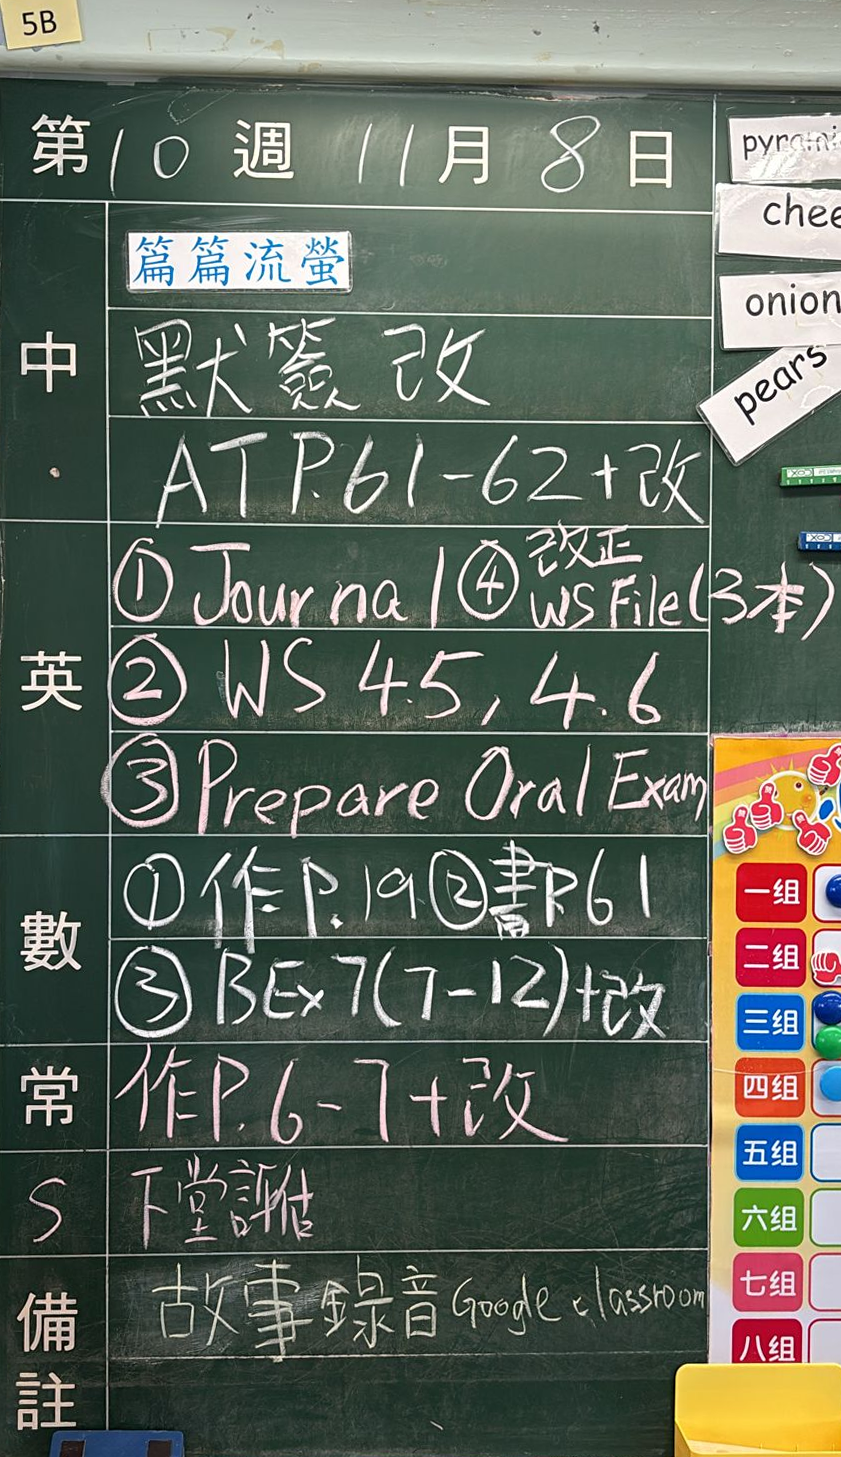 5B
第10週 11月8日
中
篇篇流螢
默簽改
AT P.61-62+改
英
① Journal ④ 改正 WS File(3本)
② WS 4.5, 4.6
③ Prepare Oral Exam
數
① 作P.19 ② 書P.61
③ BEx7(7-12)+改
常
作P.6-7+改
S
下堂評估
備註
故事錄音 Google classroom
onion
pears
一组
二组
三组
四组
五组
六组
七组
八组